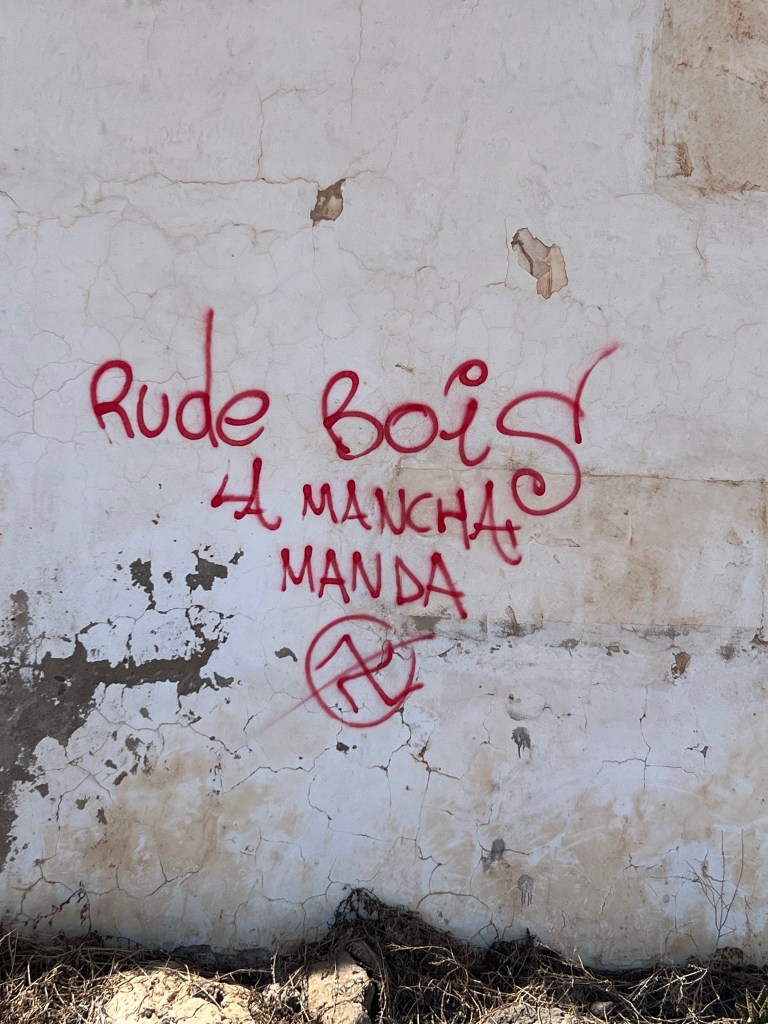 Rude Bois
LA MANCHA
MANDA